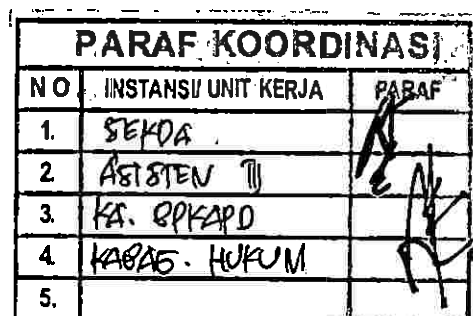 PARAF KOORDINASI
NO INSTANSI/ UNIT KERJA PARAF
1. SEKDA
2. ASISTEN III
3. KA. BPKAPD
4. KABAG. HUKUM
5.